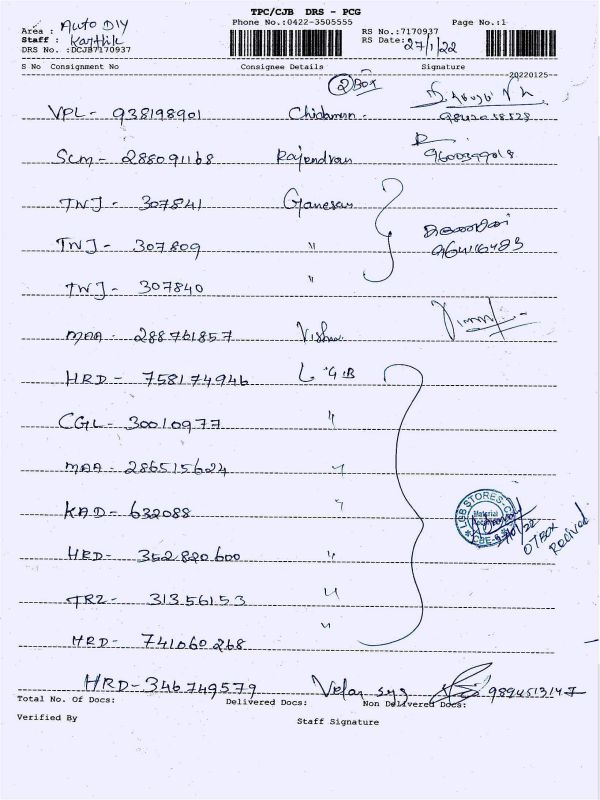 TPC/CJB DRS - PCG
Area : Auto DIY
Phone No.:0422-3505555
Page No.:1
Staff : Karthik
RS No.:7170937
DRS No. :DCJB7170937
RS Date: 27/1/22
S No Consignment No Consignee Details Signature
20220125
② Box
VPL - 938198901
SCM - 288091168 Rajendran
TNJ - 307841 Ganesan
TNJ - 307809 "
TNJ - 307840 "
MAA - 288761857
HRD - 758174946 LGB
CGL - 30010977 "
MAA - 286515624 "
KAD - 632088 "
HRD - 352820600 "
TRZ - 31356153 "
HRD - 741060268 "
LGB STORES
Material
07 BOX
Recived
HRD - 346749579 Velan 9894513147
Total No. Of Docs: Delivered Docs: Non Delivered Docs:
Verified By Staff Signature